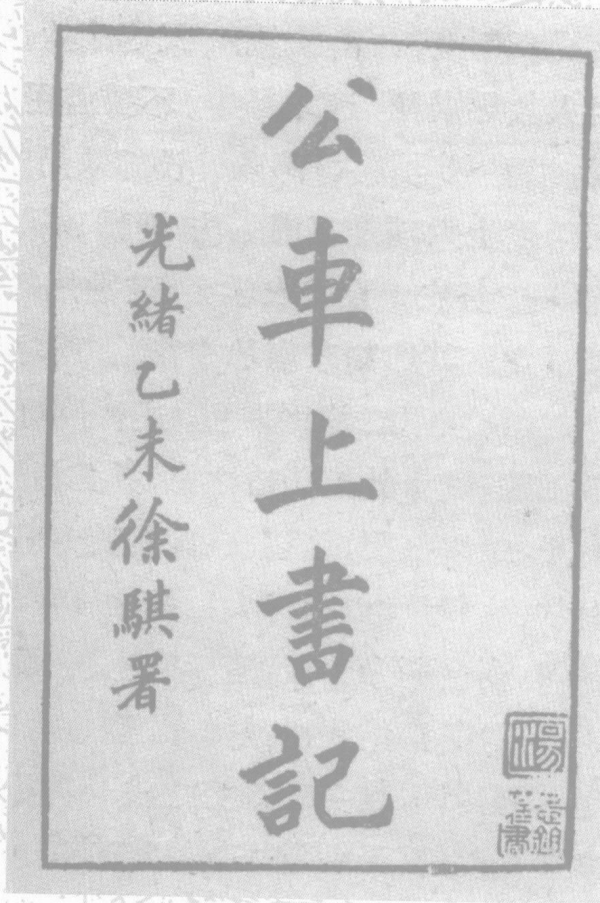 公車上書記
光緒乙未徐騏署